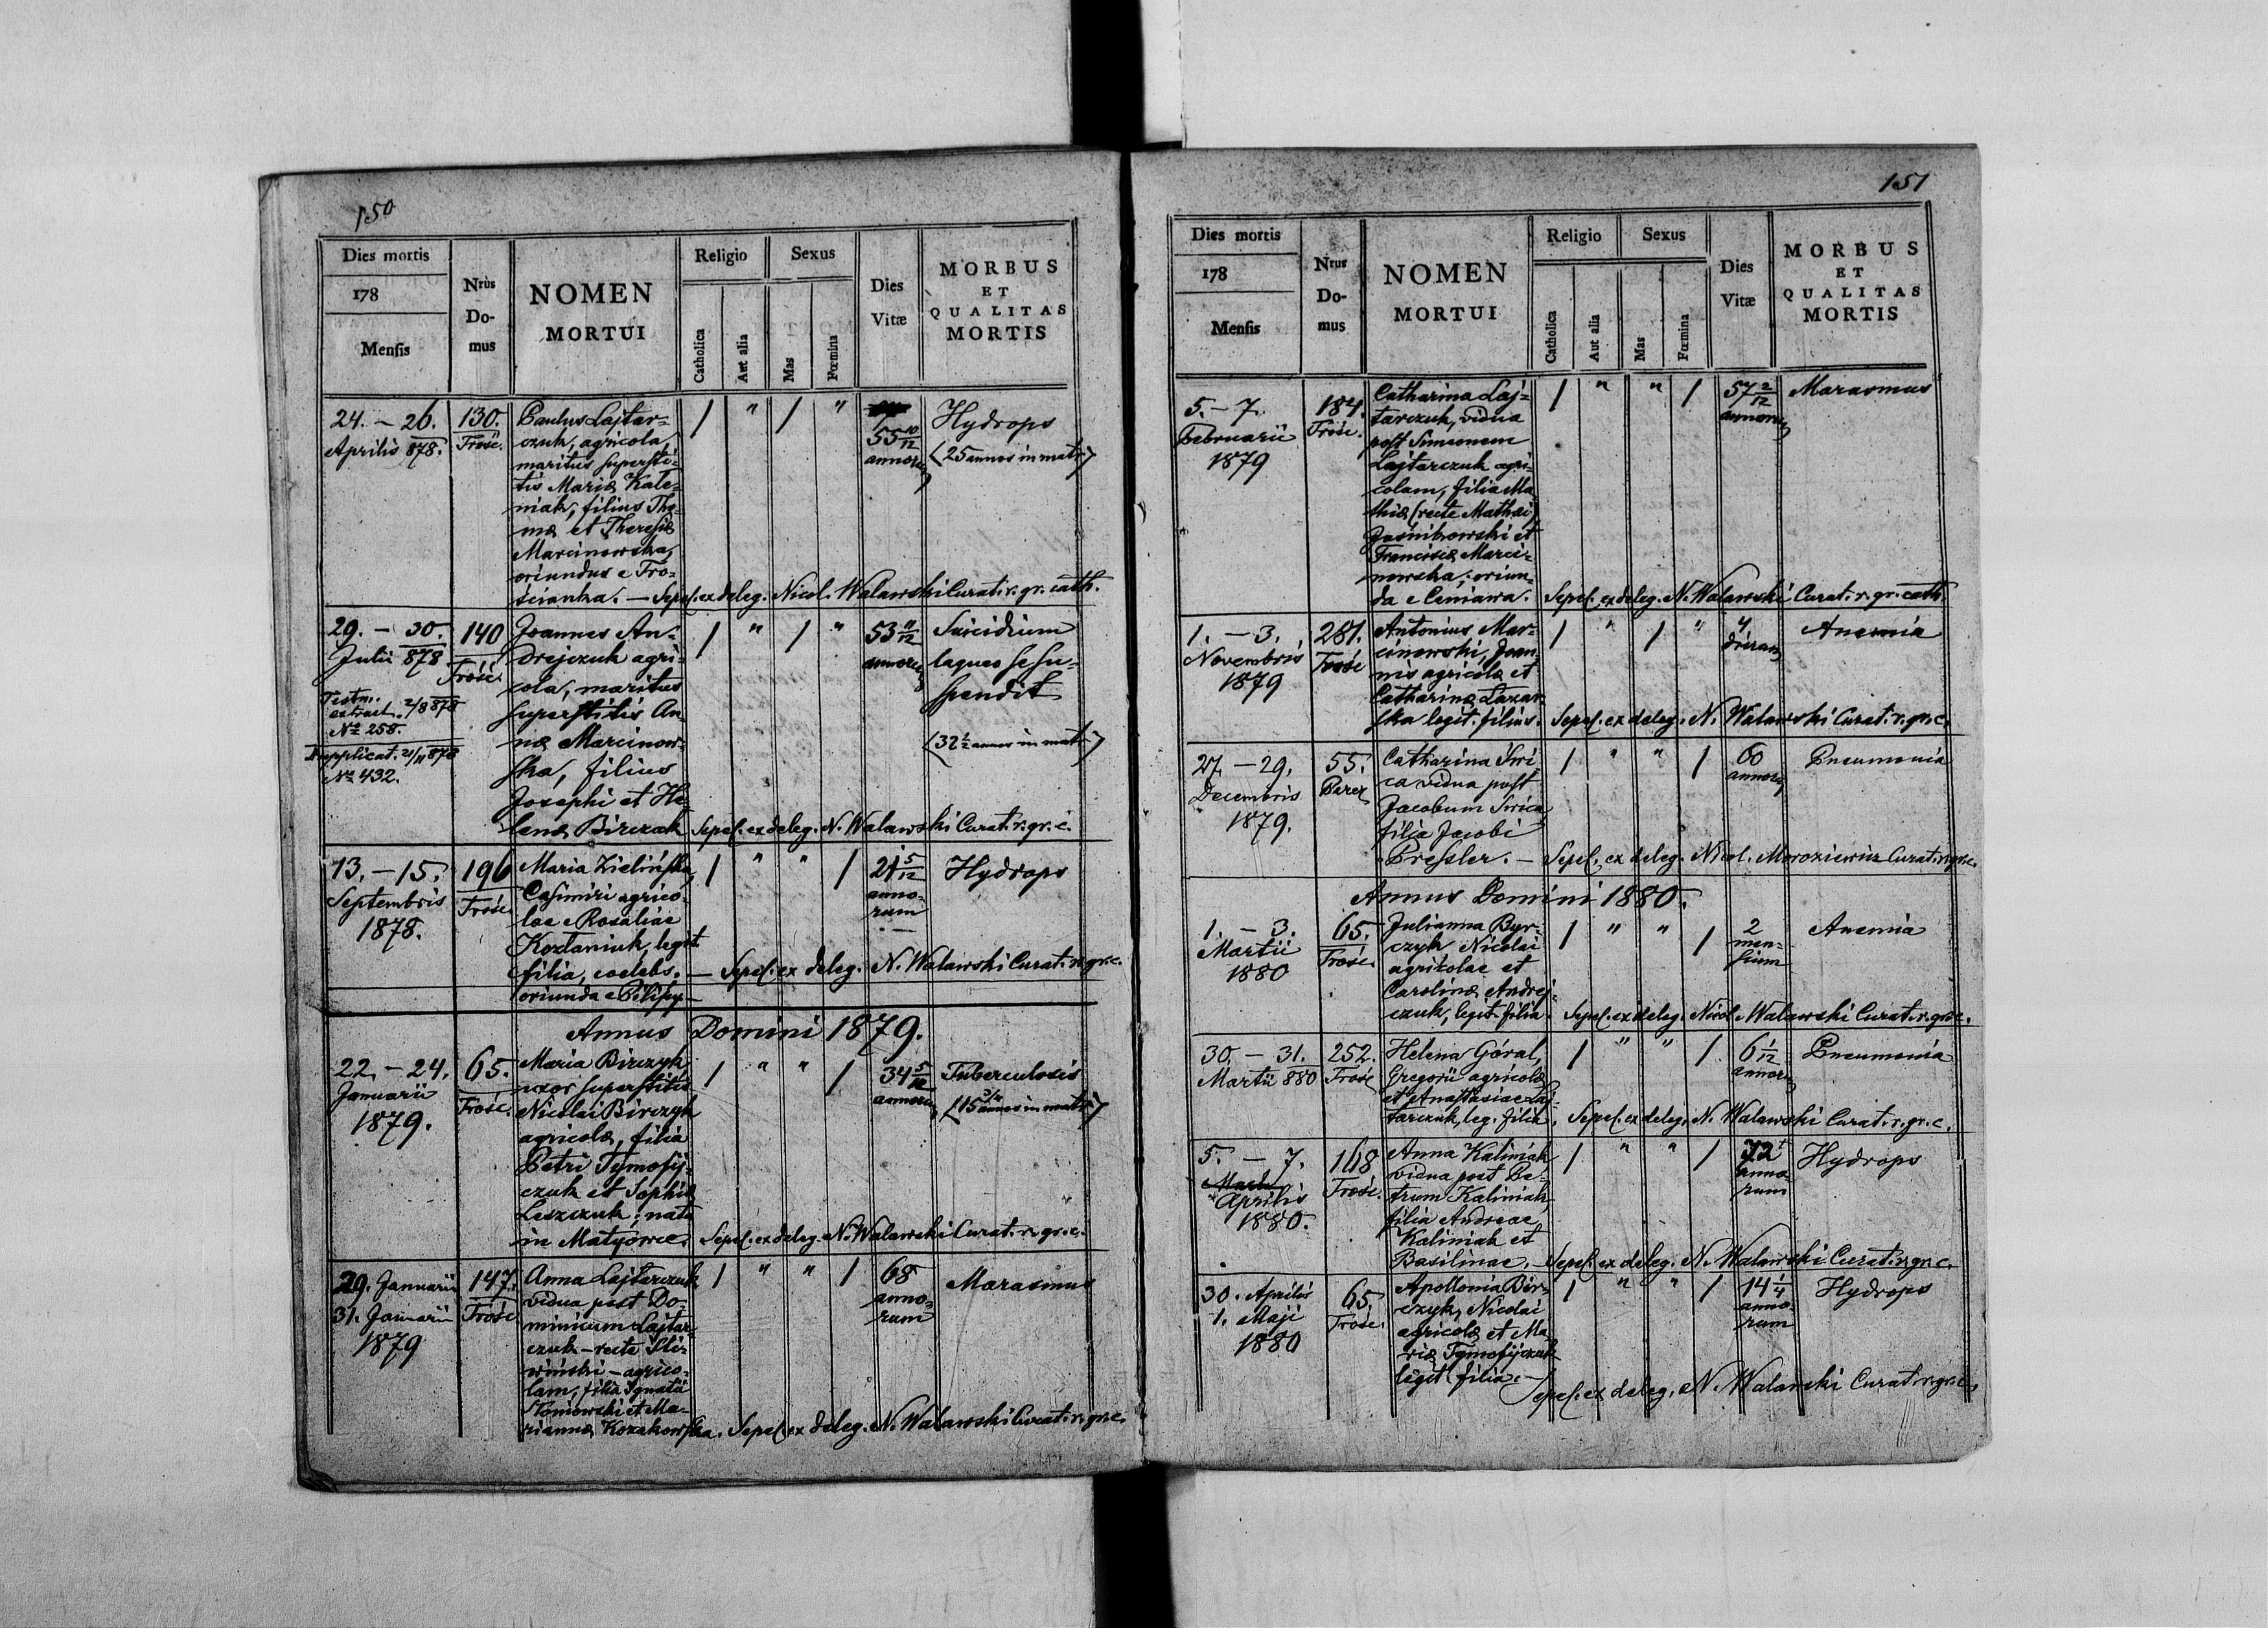 150
Dies mortis
178
Mensis
Nrùs Do-mus
NOMEN MORTUI
Religio
Catholica
Aut alia
Sexus
Mas
Fœmina
Dies Vitæ
MORBUS ET QUALITAS MORTIS
24. – 26. Aprilis 878.
130. Trość.
Paulus Lajtar=
czuk, agricola,
maritus supersti=
tis Mariæ Kale=
niak, filius Tho=
mæ et Theresiæ
Marcinowska,
oriundus e Tro=
ścianka. – Sepel. ex deleg. Nicol. Walawski Curat. r. gr. cath.
/ " / "
55 10/12 annorum
Hydrops
(25 annos in matr.)
29. – 30. Julii 878
Testm. extract. 2/8 878
№ 258.
Supplicat. 21/11 878
№ 432.
140 Trość.
Joannes An=
drejczuk agri=
cola, maritus
superstitis An=
næ Marcinow=
ska, filius
Josephi et He=
lenæ Birczak Sepel. ex deleg. N. Walawski Curat. r. gr. c.
/ " / "
53 11/12 annorum
Suicidium
laqueo se su=
spendit
(32 ½ annos in matr.)
13. – 15. Septembris 1878.
196 Trość.
Maria Zielińska,
Casimiri agrico=
lae e Rosaliae
Kozłaniuk, legit.
filia, coelebs. – Sepel. ex deleg. N. Walawski Curat. r. gr. c.
oriunda e Pilipy –
/ " " /
21 5/12 anno=rum
Hydrops
Annus Domini 1879.
22. – 24. Januarii 1879.
65. Trość.
Maria Birczyk
uxor superstitis
Nicolai Birczyk
agricolæ, filia
Petri Tymofij=
czuk et Sophiæ
Leszczuk; nata
in Matyowce. Sepel. ex deleg. N. Walawski Curat. r. gr. c.
/ " " /
34 5/12 annorum
Tuberculosis
(15 3/4 annos in matr.)
29. Januarii
31. Januarii
1879
147. Trość
Anna Lajtarczuk
vidua post Do=
minicum Lajtar=
czuk – recte Sli=
wiński – agrico=
lam, filia Ignatii
Słoniowski et Ma=
riannæ Kozakowska. Sepel. ex deleg. N. Walawski Curat. r. gr. c.
/ " " /
68 anno=rum
Marasmus
151
Dies mortis
178
Mensis
Nrus Do-mus
NOMEN MORTUI
Religio
Catholica
Aut alia
Sexus
Mas
Fœmina
Dies Vitæ
MORBUS ET QUALITAS MORTIS
5. – 7. Februarii 1879
184. Trość.
Catharina Laj=
tarczuk, vidua
post Simeonem
Lajtarczuk agri=
colam, filia Ma
thiæ (recte Mathæi)
Jaśnikowski et
Franciscæ Marci=
nowska; oriun=
da e Ceniawa. Sepel. ex deleg. N. Walawski Curat. r. gr. cath.
/ " " /
57 2/12 annorum
Marasmus
1. – 3. Novembris 1879
281. Trość
Antonius Mar=
cinowski, Joan=
nis agricolæ et
Catharinæ Lazar=
ska legit. filius. Sepel. ex deleg. N. Walawski Curat. r. gr. c.
/ " / "
4 dierum
Anemia
27. – 29. Decembris 1879.
55. Perer
Catharina Swi=
ca vidua post
Jacobum Swica,
filia Jacobi
Pressler. – Sepel. ex deleg. Nicol. Moroziewicz Curat. r. gr. c.
/ " " /
60 annorum
Pneumonia
Annus Domini 1880.
1. – 3. Martii 1880
65. Trość.
Julianna Byr=
czyk Nicolai
agricolae et
Carolinæ Andrej=
czuk, legit. filia. Sepel. ex deleg. Nicol. Walawski Curat. r. gr. c.
/ " " /
2 men=sium
Anemia
30. – 31. Martii 880
252. Trość
Helena Góral,
Gregorii agricolæ
et Anastasiae Laj=
tarczuk, leg. filia. Sepel. ex deleg. N. Walawski Curat. r. gr. c.
/ " " /
6 1/12 annorum
Pneumonia
5. – 7. Aprilis 1880.
168 Trość.
Anna Kaliniak
vidua post Pe=
trum Kaliniak,
filia Andreae
Kaliniak et
Basilinae. – Sepel. ex deleg. N. Walawski Curat. r. gr. c.
/ " " /
anno=rum
Hydrops
30. Aprilis
1. Maji
1880
65. Trość.
Apollonia Bir=
czyk, Nicolai
agricolæ et Ma
riæ Tymofijczuk
legit. filia. – Sepel. ex deleg. N. Walawski Curat. r. gr. c.
/ " " /
14 1/4 anno=rum
Hydrops